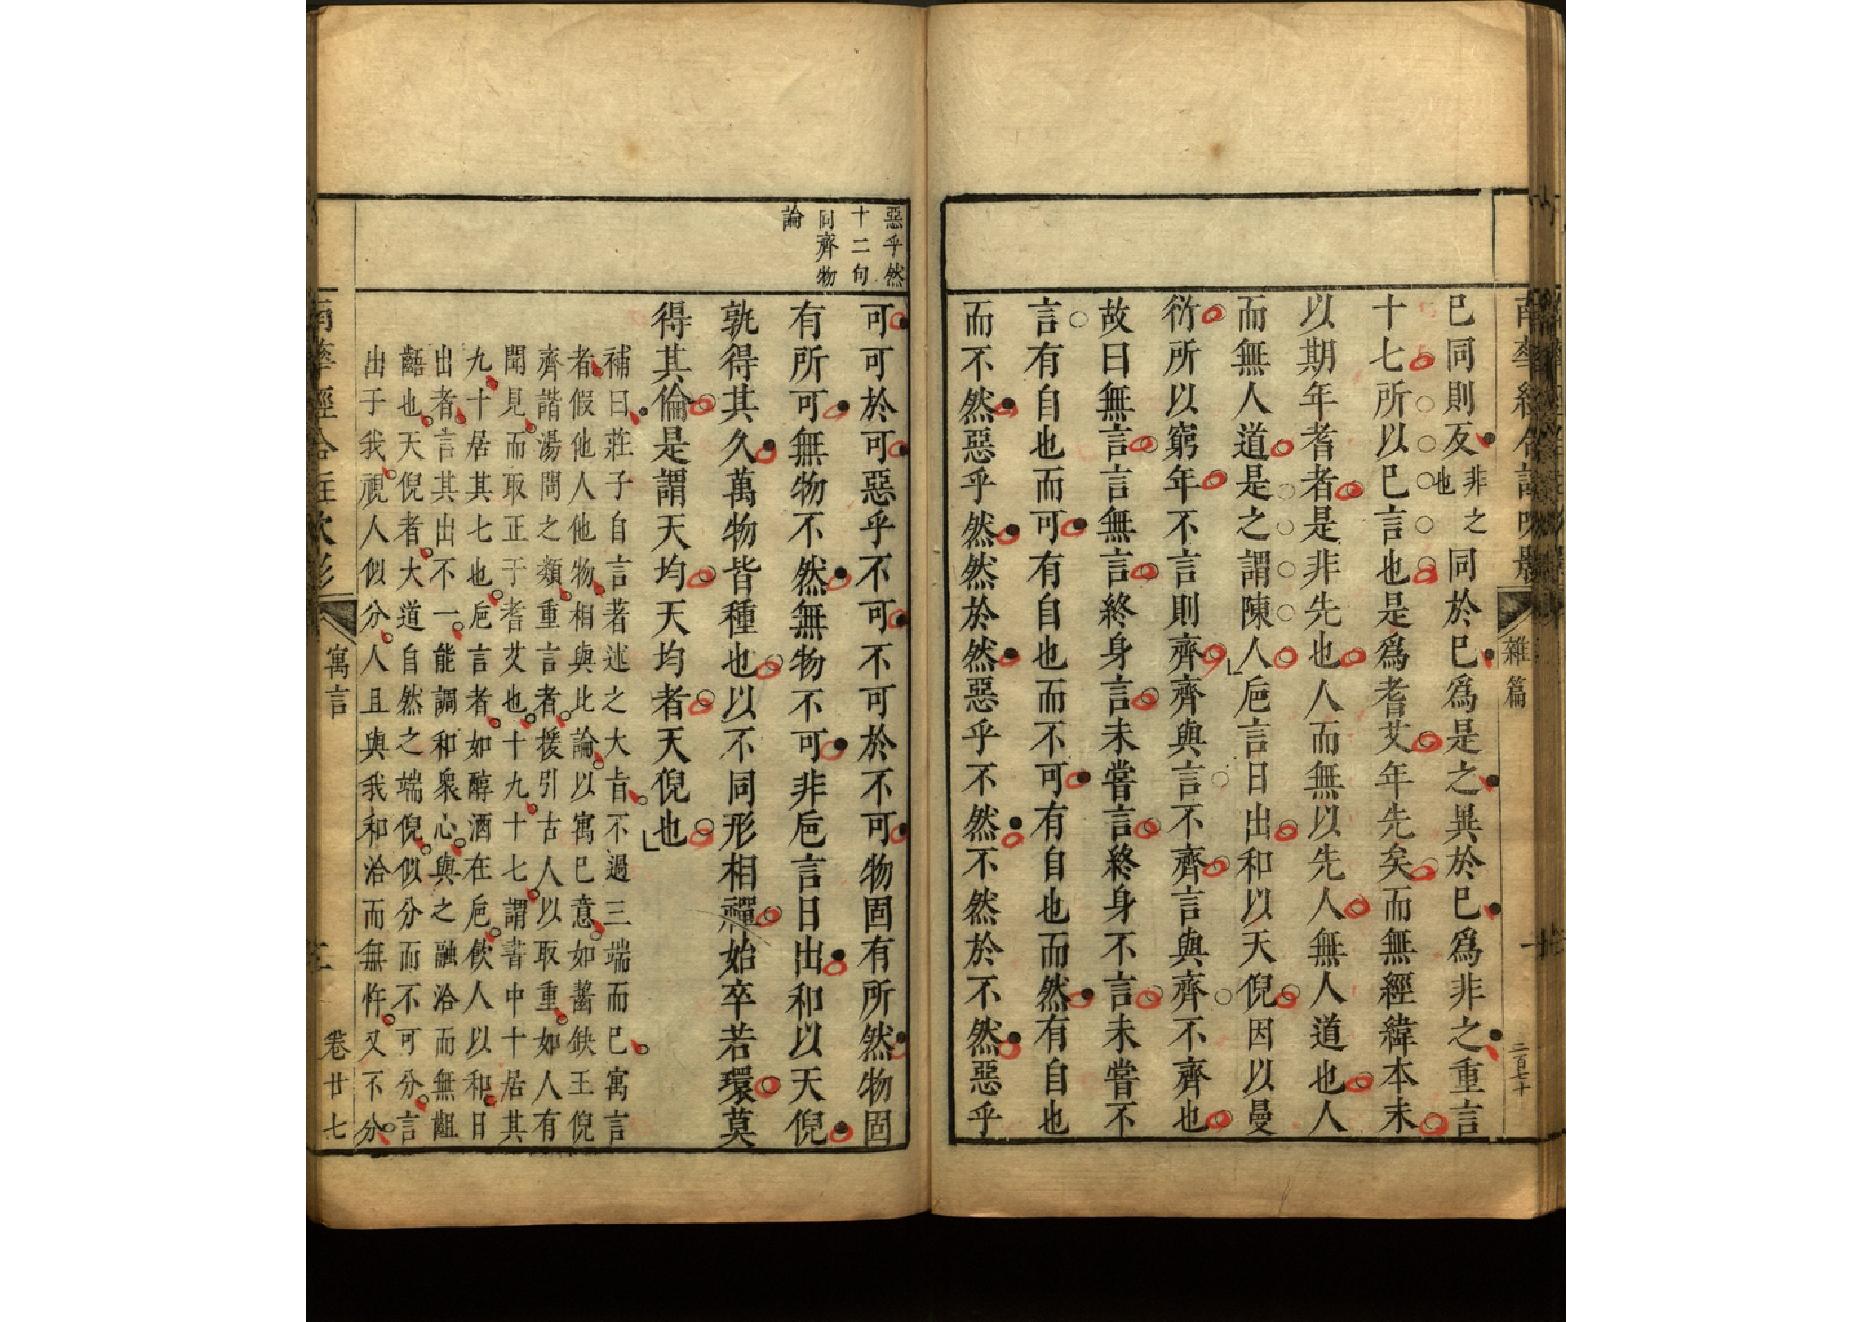 南華經合註吹影
雜篇
三百七十
已同則反非之也同於已爲是之異於已爲非之重言
十七所以已言也是爲耆艾年先矣而無經緯本末
以期年耆者是非先也人而無以先人無人道也人
而無人道是之謂陳人巵言日出和以天倪因以曼
衍所以窮年不言則齊齊與言不齊言與齊不齊也
故曰無言言無言終身言未嘗言終身不言未嘗不
言有自也而可有自也而不可有自也而然有自也
而不然惡乎然然於然惡乎不然不然於不然惡乎
惡乎然
十二句
同齊物
論
可可於可惡乎不可不可於不可物固有所然物固
有所可無物不然無物不可非巵言日出和以天倪
孰得其久萬物皆種也以不同形相禪始卒若環莫
得其倫是謂天均天均者天倪也
補曰莊子自言著述之大旨不過三端而已寓言
者假他人他物相與此論以寓已意如齧缺王倪
齊諧湯問之類重言者援引古人以取重如人有
聞見而取正于耆艾也十九十七謂書中十居其
九十居其七也巵言者如醇酒在巵飲人以和日
出者言其出不一能調和衆心與之融洽而無齟
齬也天倪者大道自然之端倪似分而不可分言
出子我視人似分人且與我和洽而無忤又不分
南華經合註吹影
寓言
卷廿七